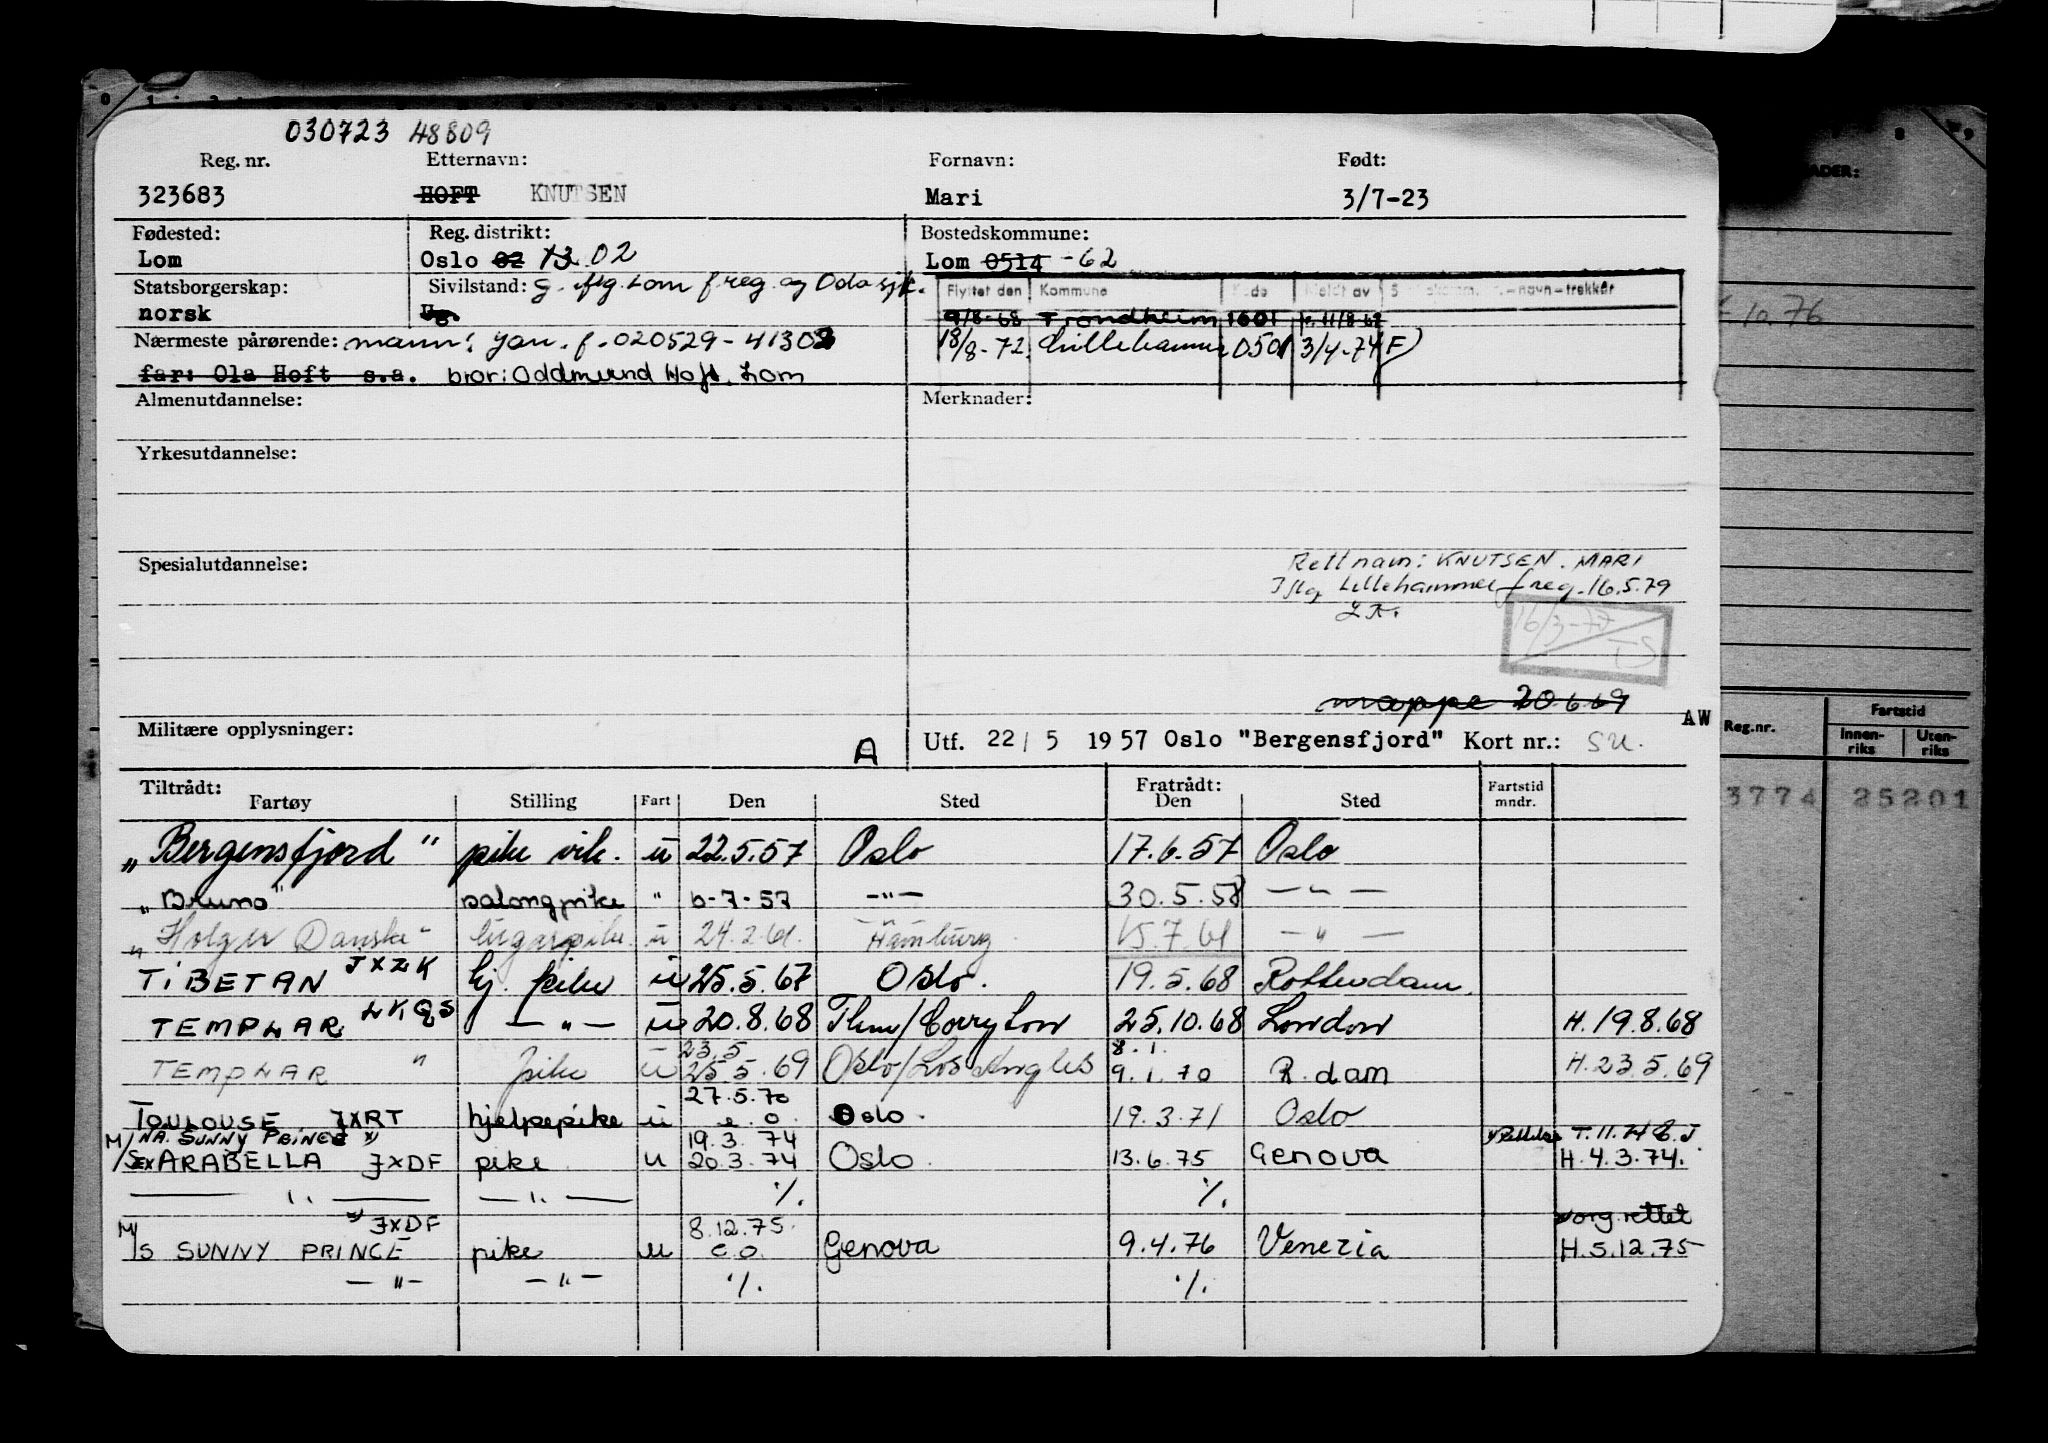 030723 48809
Reg. nr. Etternavn: Fornavn: Født:
323683 HOFT KNUTSEN Mari 3/7-23
Fødested: Reg. distrikt: Bostedskommune:
Lom Oslo 02 13 02 Lom 0514 -62
Statsborgerskap: Sivilstand: g. iflg. Lom f.reg. og Oslo sjk.
norsk Ug.
Flyttet den Kommune Kode Meldt av
9/8-68 Trondheim 1601
18/8-72 Lillehammer 0501 3/4-74 F)
Nærmeste pårørende: mann: Jan. f. 020529-41302
far: Ola Hoft s.a. bror: Oddmund Hoft, Lom
Almenutdannelse: Merknader:
Yrkesutdannelse:
Spesialutdannelse:
Rett navn: KNUTSEN. MARI
Iflg Lillehammer f reg. 16.5.79
16/3-77
TS
mappe 20.6.69
Militære opplysninger: A Utf. 22/5 1957 Oslo "Bergensfjord" Kort nr.: su. AW
Tiltrådt: Fratrådt:
Fartøy Stilling Fart Den Sted Den Sted Fartstid mndr.
"Bergensfjord" pike vik. u 22.5.57 Oslo 17.6.57 Oslo
"Bruno" salongpike " 6-7-57 -"- 30.5.58 -"-
"Holger Danske" lugarpike u 24.2.61 Hamburg 15.7.61 -"-
TIBETAN JXZK hj. pike u 25.5.67 Oslo. 19.5.68 Rotterdam.
TEMPLAR LKQS -"- u 20.8.68 Thm/Corryton 25.10.68 London H. 19.8.68
23.5 8.1.
TEMPLAR " pike u 25.5.69 Oslo/Los Angles 9.1.70 R.dam H. 23.5.69
27.5.70
TOULOUSE JXRT hjelpepike u e.o. Oslo. 19.3.71 Oslo
M/S NA. SUNNY PRINCE x) 19.3.74 x) Rettelse T. 11.
EX ARABELLA JXDF pike u 20.3.74 Oslo. 13.6.75 Genova H. 4.3.74.
-"- -"- ./. ./.
x) JXDF 8.12.75. x) org. rettet
M/S SUNNY PRINCE pike u e.o. Genova 9.4.76 Venezia H. 5.12.75
-"- -"- ./. ./.
10.76
Reg.nr. Fartstid
Innenriks Utenriks
3774 25201